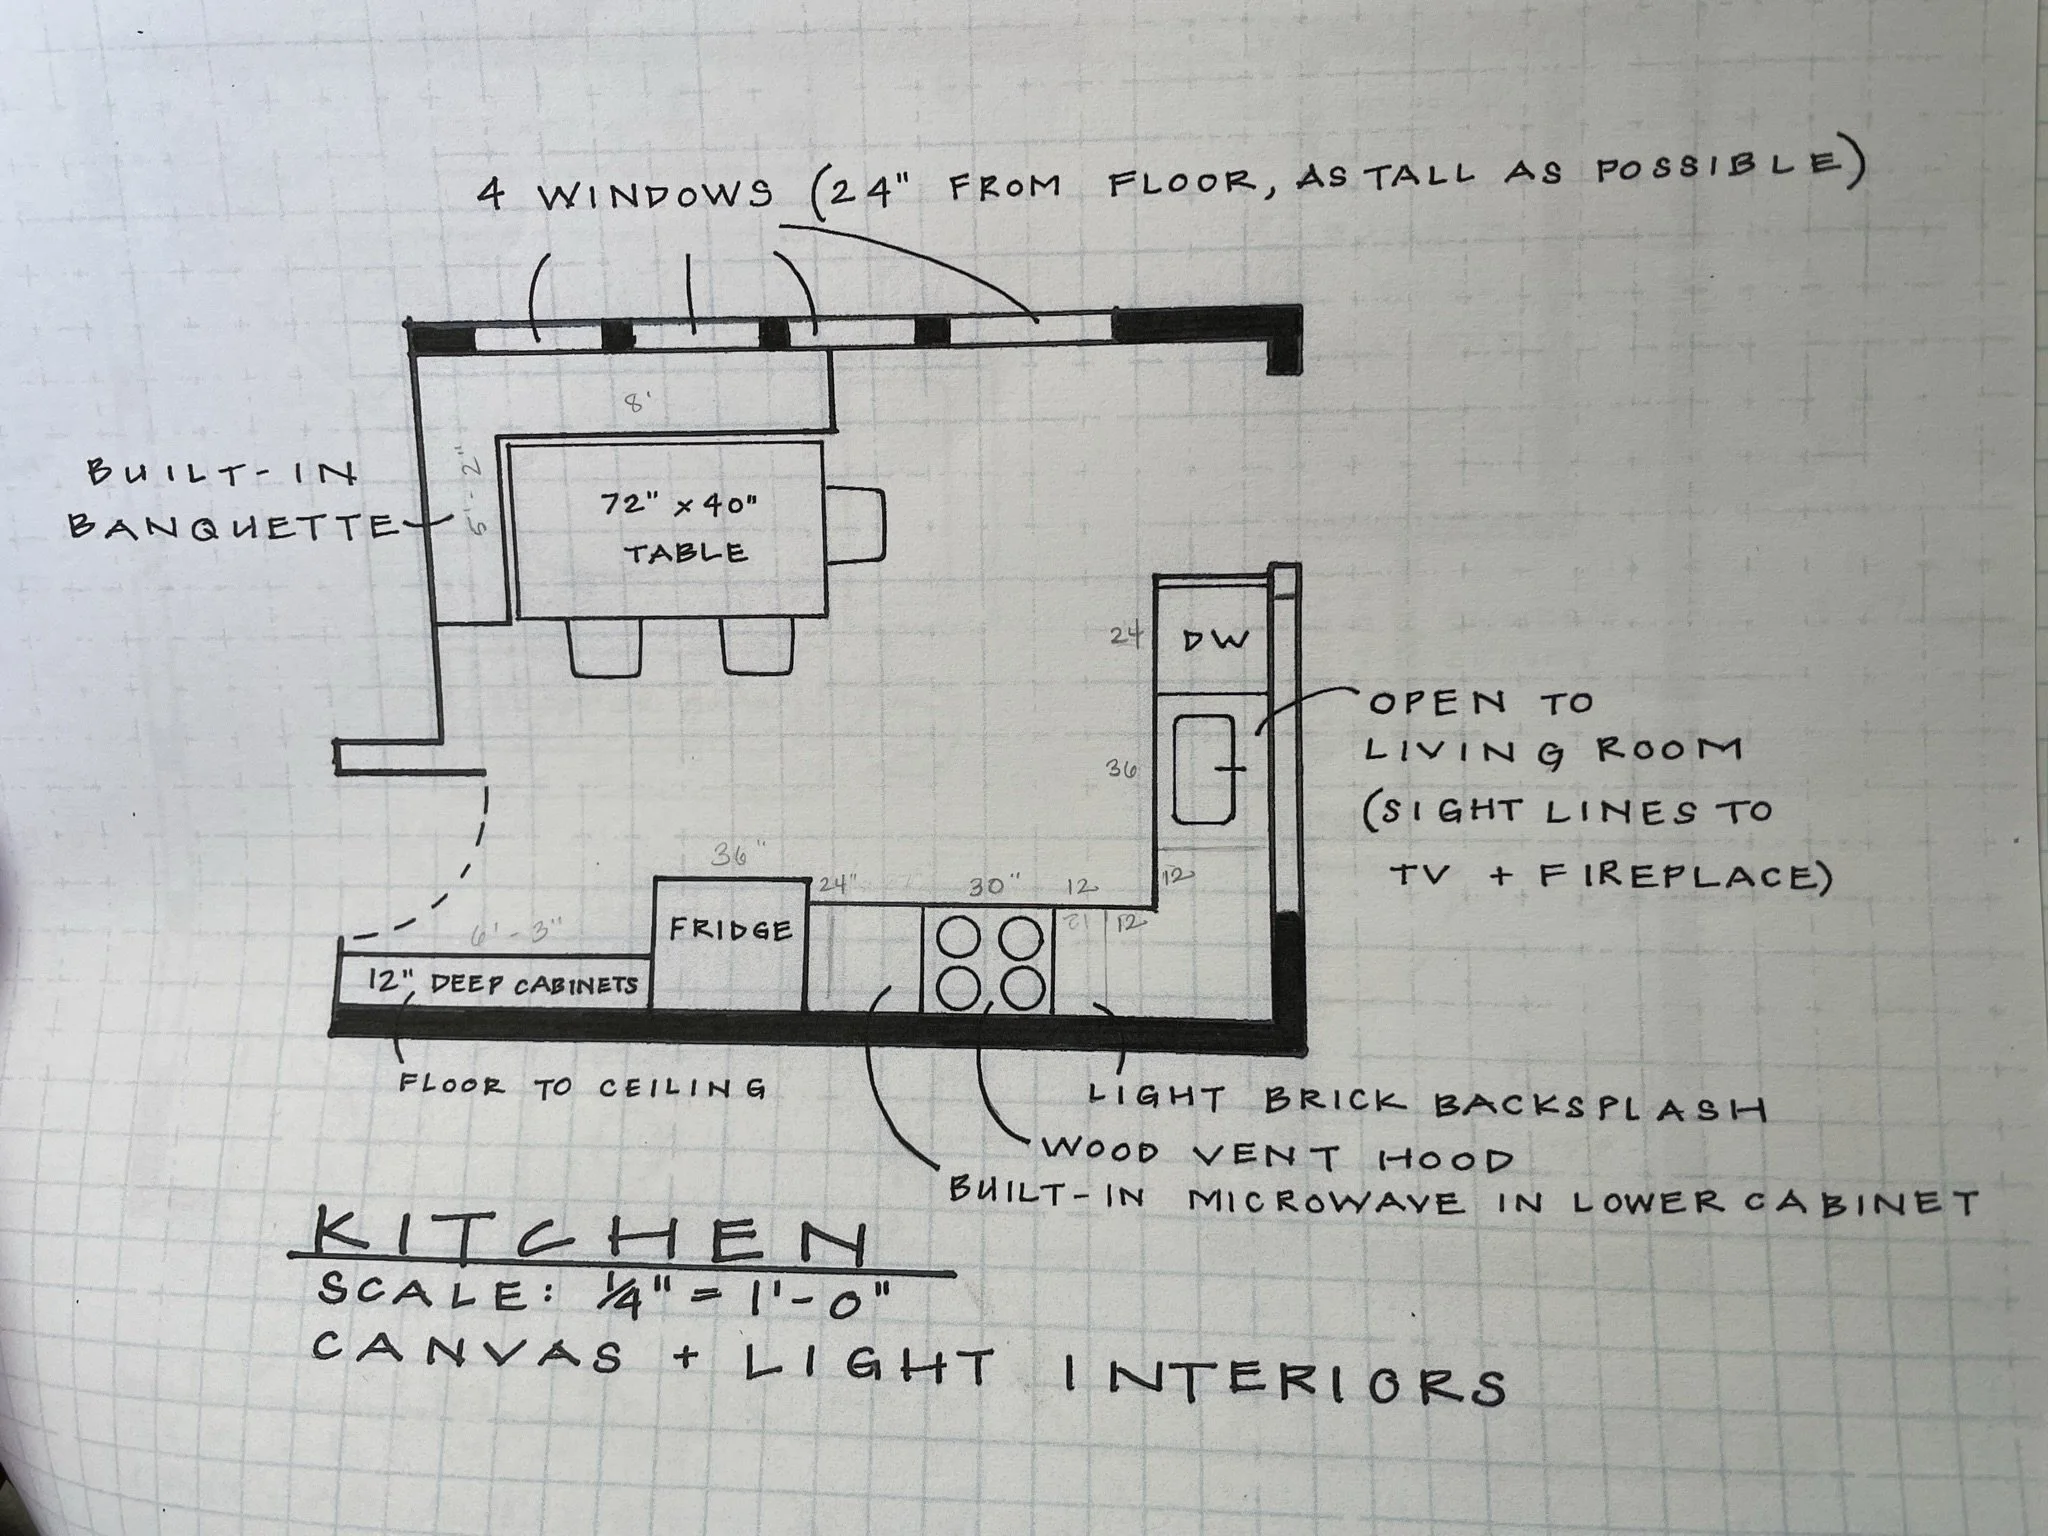 4 WINDOWS (24" FROM FLOOR, AS TALL AS POSSIBLE)
8'
BUILT-IN
BANQUETTE
72" x 40"
TABLE
24
DW
36
OPEN TO
LIVING ROOM
(SIGHT LINES TO
TV + FIREPLACE)
36"
24"
30"
12
12
12
6'-3"
FRIDGE
12" DEEP CABINETS
FLOOR TO CEILING
LIGHT BRICK BACKSPLASH
WOOD VENT HOOD
BUILT-IN MICROWAVE IN LOWER CABINET
KITCHEN
SCALE: 1/4" = 1'-0"
CANVAS + LIGHT INTERIORS